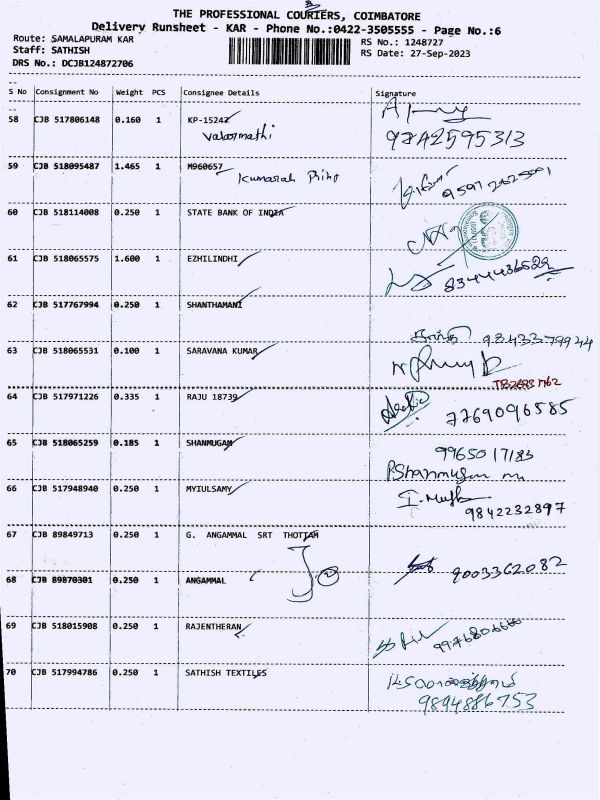 THE PROFESSIONAL COURIERS, COIMBATORE
Delivery Runsheet - KAR - Phone No.:0422-3505555 - Page No.:6
Route: SAMALAPURAM KAR
RS No.: 1248727
Staff: SATHISH
RS Date: 27-Sep-2023
DRS No.: DCJB124872706
S No Consignment No Weight PCS Consignee Details Signature
58 CJB 517806148 0.160 1 KP-15247
Valarmathi 9842595313
59 CJB 518095487 1.465 1 M960657
Kumaran
60 CJB 518114008 0.250 1 STATE BANK OF INDIA
61 CJB 518065575 1.600 1 EZHILINDHI
62 CJB 517767994 0.250 1 SHANTHAMANI
9343379944
63 CJB 518065531 0.100 1 SARAVANA KUMAR
64 CJB 517971226 0.335 1 RAJU 18739
7769096585
65 CJB 518065259 0.185 1 SHANMUGAM
9965017183
P.Shanmugam
66 CJB 517948940 0.250 1 MYIULSAMY
9842232897
67 CJB 89849713 0.250 1 G. ANGAMMAL SRT THOTTAM
9003362082
68 CJB 89870301 0.250 1 ANGAMMAL
69 CJB 518015908 0.250 1 RAJENTHERAN
70 CJB 517994786 0.250 1 SATHISH TEXTILES
9894886753